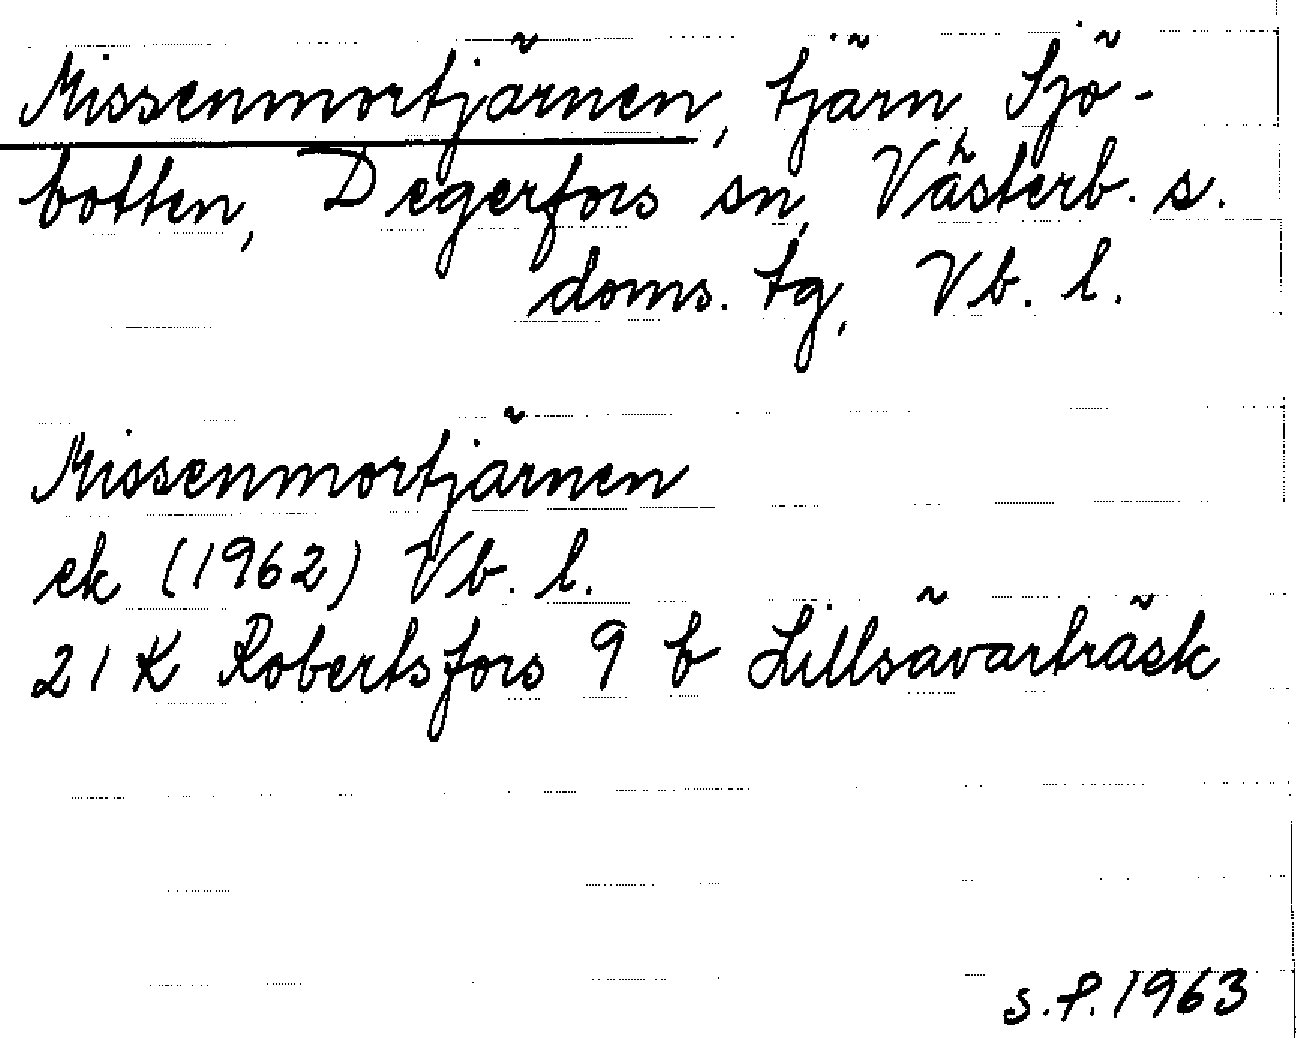 Missenmortjärnen, tjärn, Sjö-
botten, Degerfors sn, Västerb. s.
doms. tg, Vb. l.
Missenmortjärnen
ek (1962) Vb. l.
21 K Robertsfors 9 b Lillsävarträsk
s.f. 1963